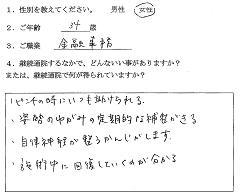 1. 性別を教えてください。 男性 女性
2. ご年齢 34 歳
3. ご職業 金融事務
4. 継続通院するなかで、どんないい事がありますか?
または、継続通院で何が得られていますか?
・ピンチの時にいつも助けられる。
・姿勢のゆがみの定期的な補整ができる
・自律神経が整うかんじがします。
・施術中に回復していくのが分かる